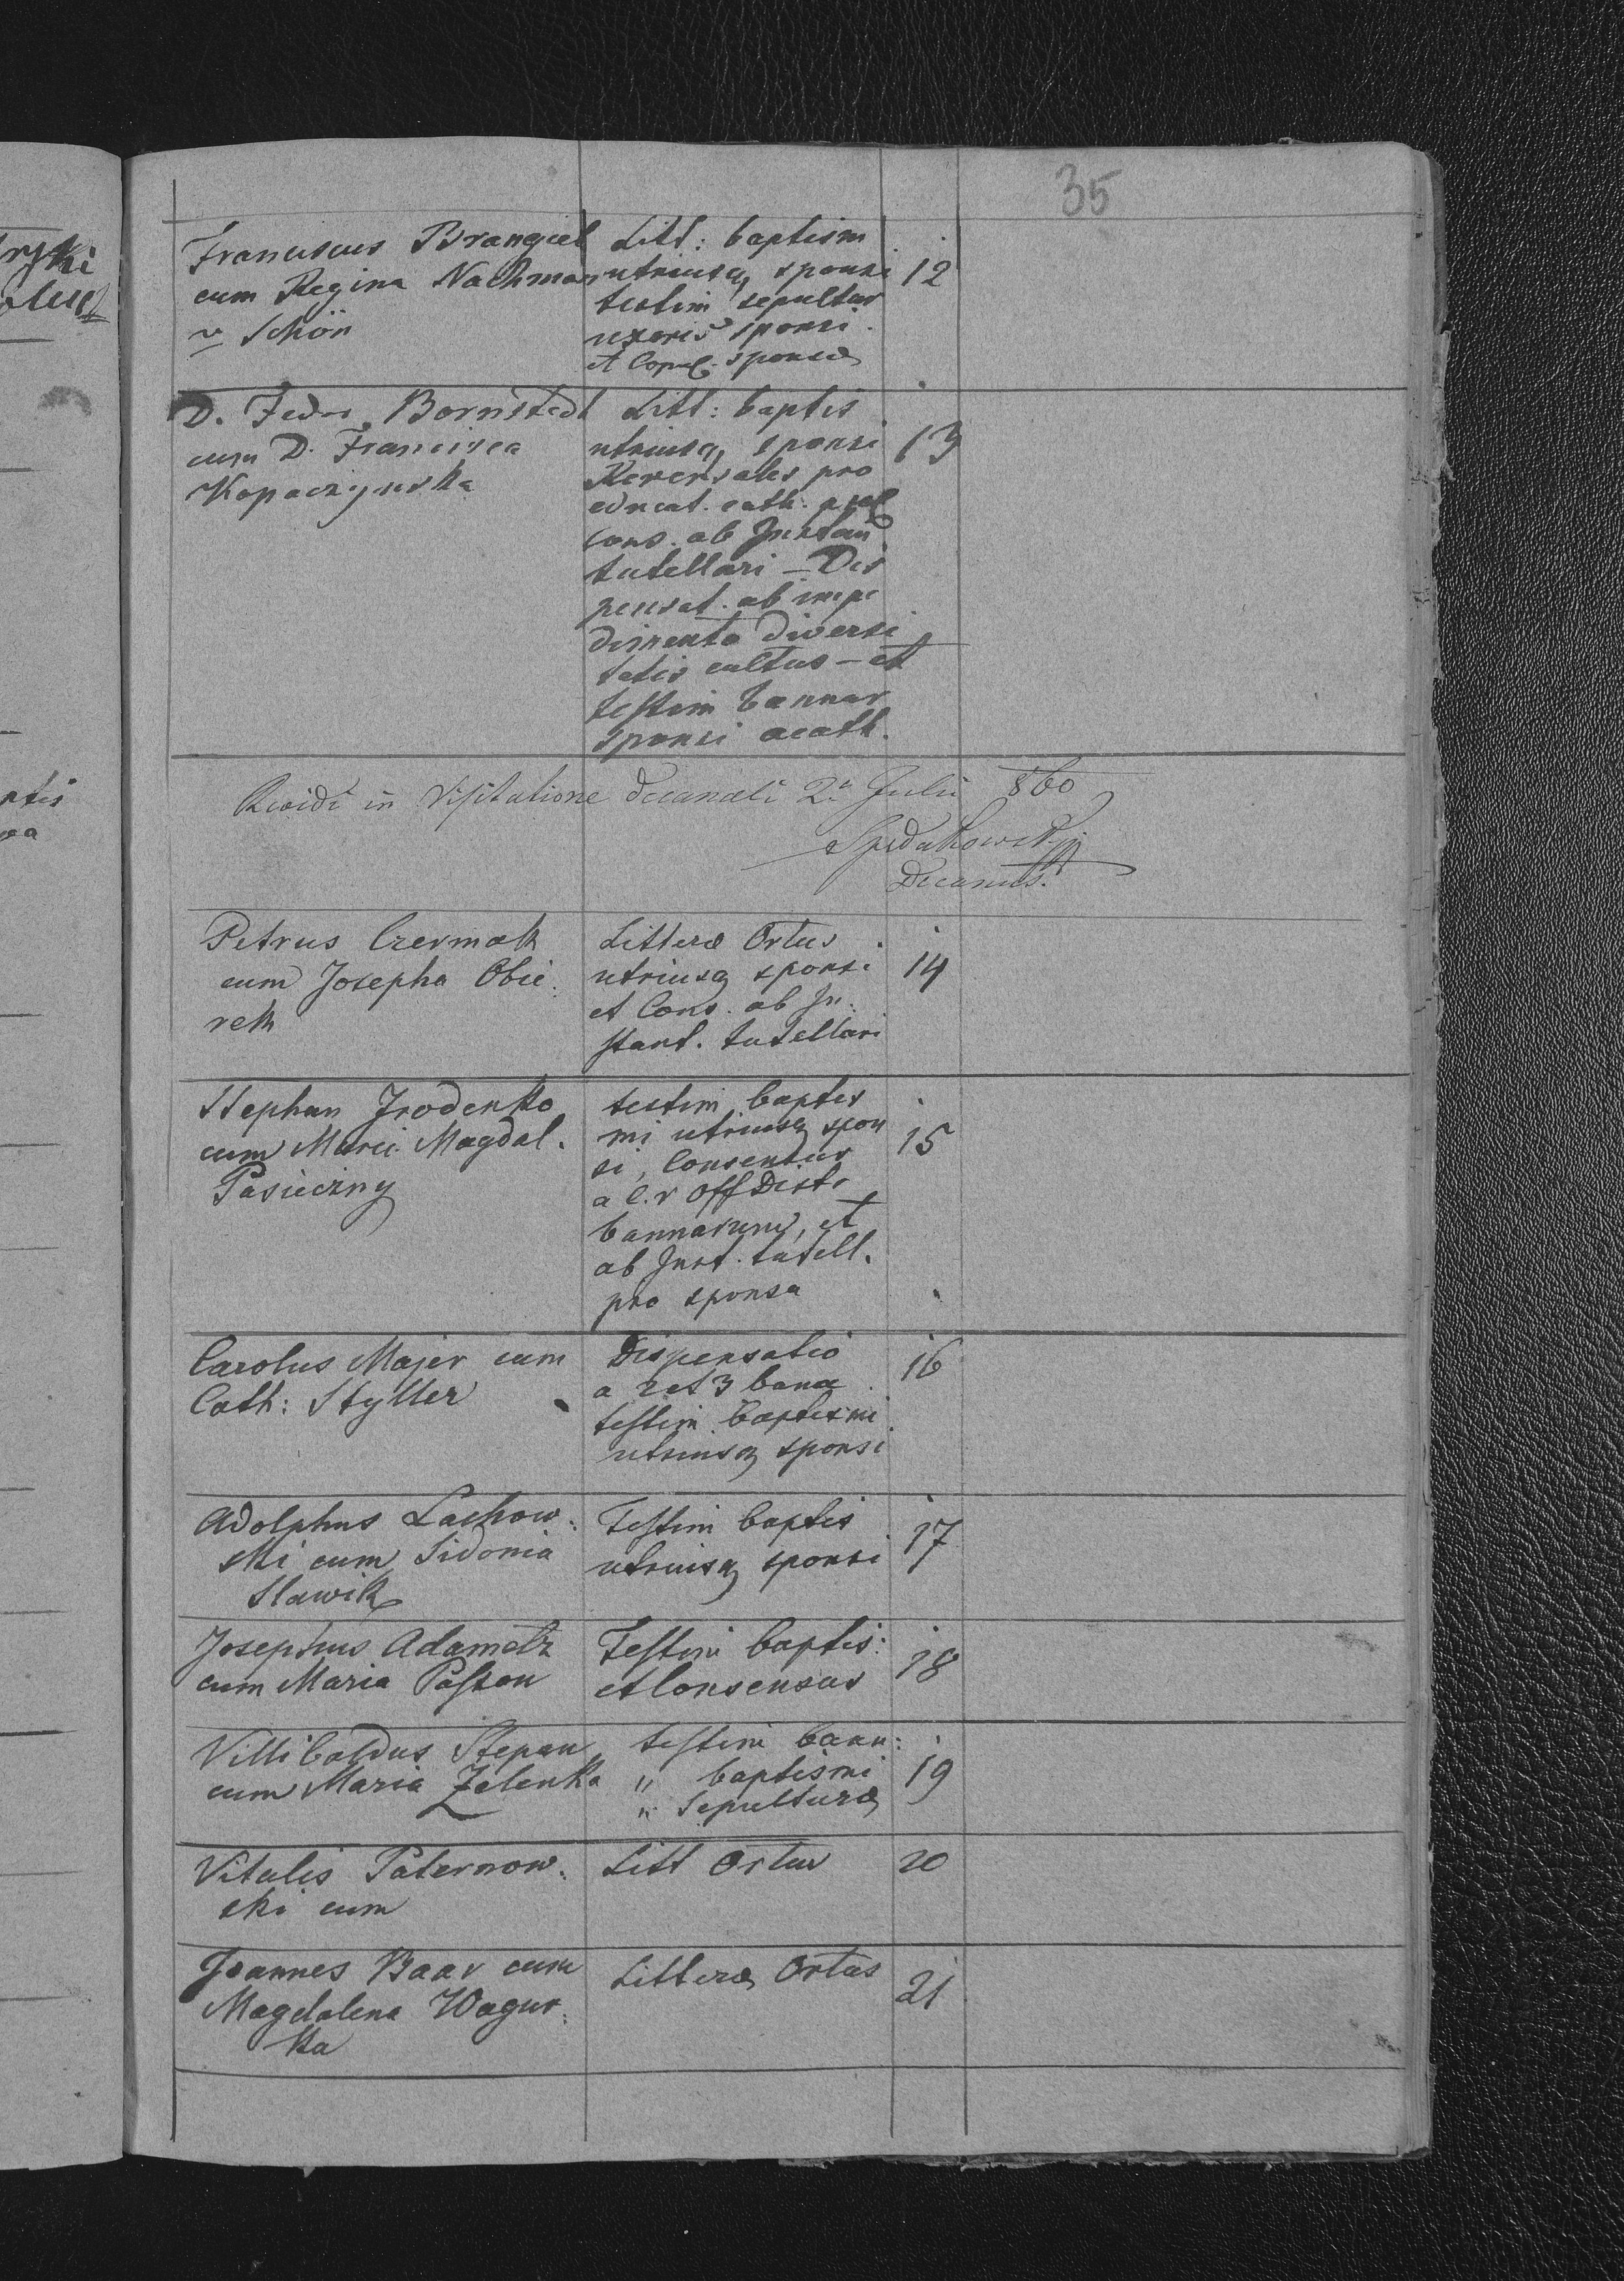 35
Franciscus Brangiel
cum Regina Nachman
v Schön
Litt: baptism
utriusq sponsi
testim sepultur
uxoris sponsi
et Copul. sponsæ
12
D. Bornstedt
cum D. Francisca
Kopaczynska
Litt: baptis
utriusq sponsi
Reversales pro
educat. cath. prol
Cons. ab Instan
tutellari – Dis
pensat. ab impe
dimento diversi
tatis cultus – et
testim bannor
sponsi acath.
13
Revidi in Visitatione decanali 2a Julii 860
Decanus.
Petrus Czermak
cum Josepha Obie
rek
Litteræ Ortus
utriusq sponsi
et Cons. ab In.
stant. tutellari
14
Stephan Jrodenko
cum Marii Magdal.
Pasieczny
testim baptis
mi utriusq spon
si, Consensus
a C. r Off Distr
bannorum, et
ab Inst. tutell.
pro sponsa
15
Carolus Majer cum
Cath: Styller
Dispensatio
a 2 et 3 bann
testim baptismi
utriusq sponsi
16
Adolphus Lachow.
ski cum Sidonia
Slawik
Testim baptis
utriusq sponsi
17
Josephus Adametz
cum Maria Paston
Testim baptis:
et Consensus
18
Villibaldus Stepan
cum Maria Zelenka
testim bann:
" baptismi
" Sepulturæ
19
Vitalis Paternow.
ski cum
Litt Ortus
20
Joannes Baar cum
Magdalena Wagur.
ka
Litteræ Ortus
21
ryki
ptis